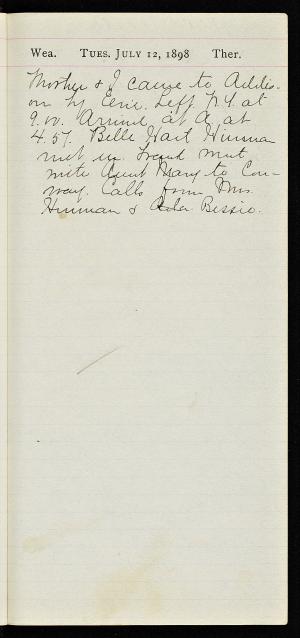 Wea. TUES. JULY 12, 1898 Ther.
Mother & I came to Addis-
on by Erie. Left N.Y. at
9.00. Arrived at A. at
4.57. Belle Hait Hinman
met us. Frank went
with Aunt Mary to Con-
way. Calls from Mrs.
Hinman & Bessie.